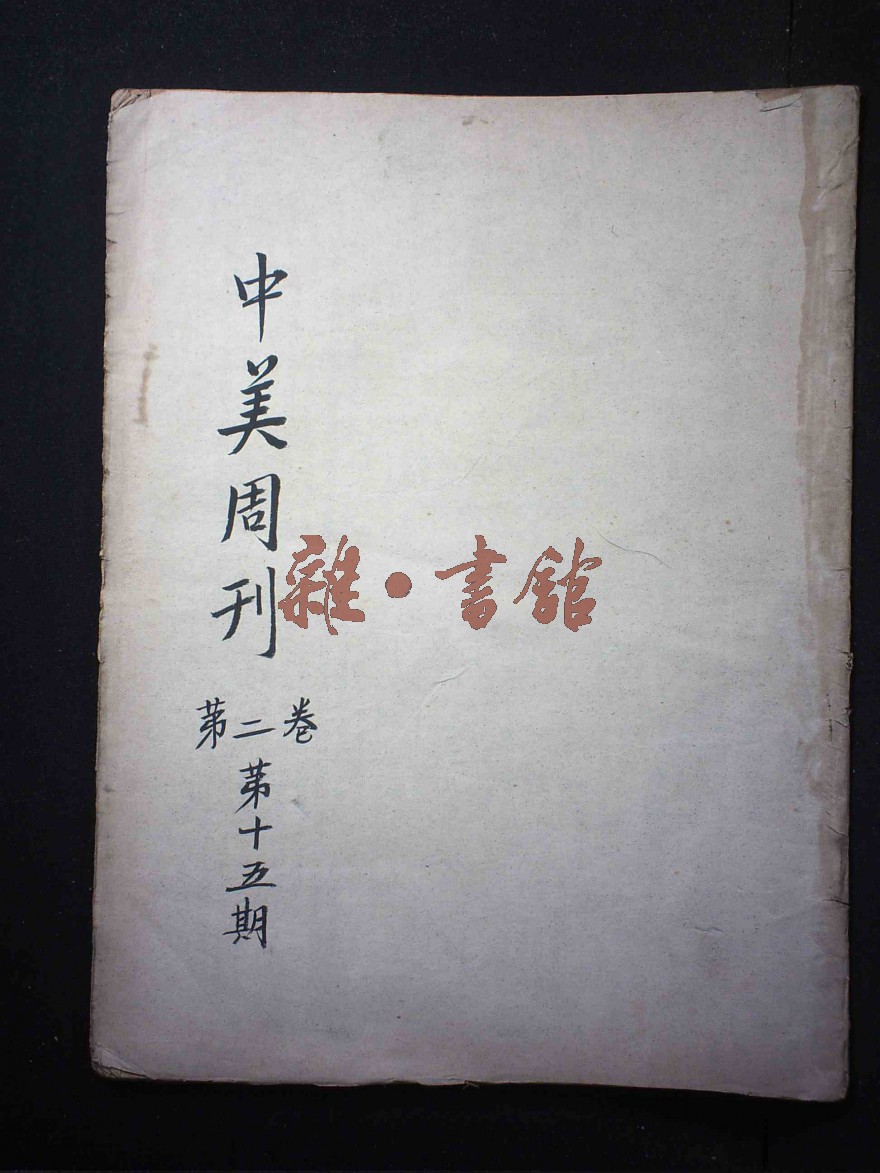 中美周刊
第二卷
第十五期
雜·書館